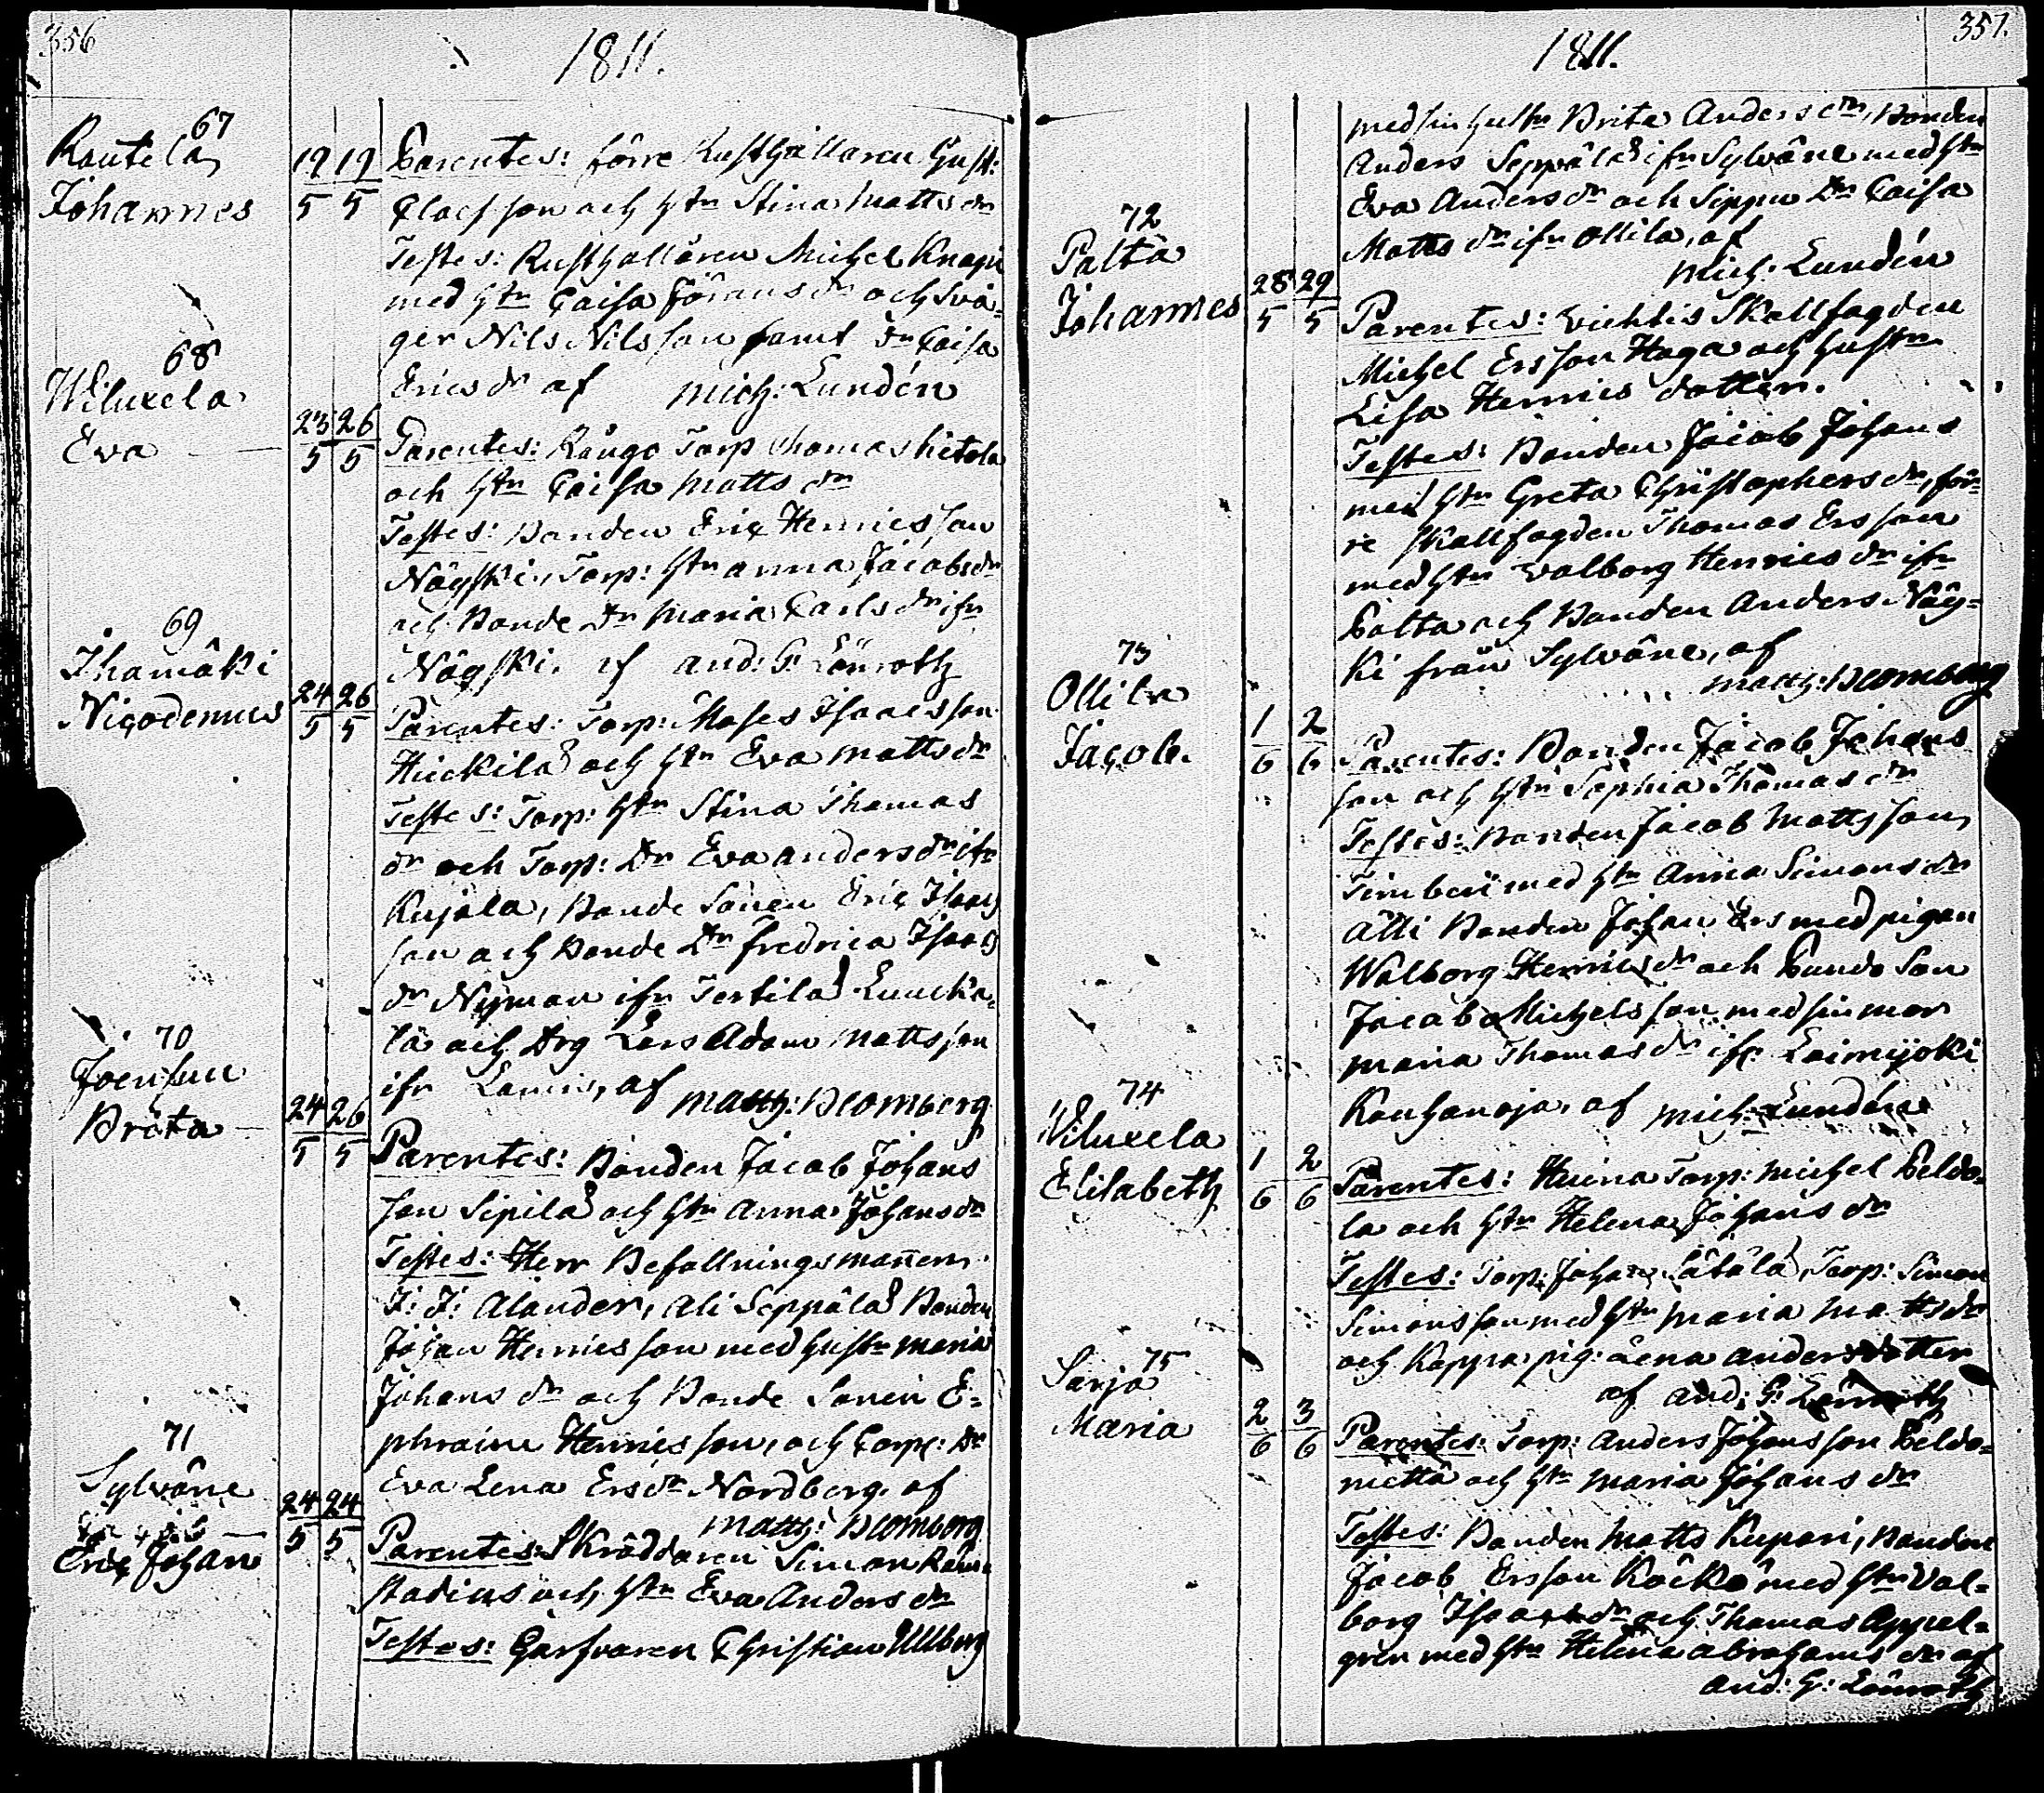 356
1811.
67
Rautela
Johannes
19 19
5 5
Parentes: förre Rusthållaren Gust:
Claesson och Hn Stina Matts dr
Testes: Rusthållaren Michel Knapi
med Hn Caisa Jörans dr och Svå-
ger Nils Nilsson samt dr Caisa
Erics dr af Mich: Lundén
68
Wiluxela
Eva
23 26
5 5
Parentes: Torp Thomas Hietala
och Hn Caisa Matts dr
Testes: Bonden Eric Henricsson
Torp: Hn Anna Jacobs dr
och Bonde dr Maria Carls dr ifr
af And: G: Lönroth
69
Ihamäki
Nicodemus
24 26
5 5
Parentes: Torp: Moses Isaacsson
Huckila och Hn Eva Matts dr
Testes: Torp: Hn Stina Thomas
dr och Torp: Dr Eva Anders dr ifr
Kujala, Bonde Sonen Eric Isaacs
son och Bonde Dr Fredrica Isaacs
dr Nyman ifr Tertilä
lä och Drg Lars Adam Mattsson
ifr af Matth: Blomberg
70
Joensuu
Brita
24 26
5 5
Parentes: Bonden Jacob Johans
son Sipilä och Hn Anna Johans dr
Testes: Herr Befallningsmannen
J: J: Alander, Ali Seppälä Bonden
Johan Henricsson med Hustr Maria
Johans dr och Bonde Sonen E-
phraim Henricsson, och Corp: Dr
Eva Lena Ers dr Nordberg. af
Matth: Blomberg
71
Sylväne
Eric Johan
24 24
5 5
Parentes: Skräddaren Simon
stadius och Hn Eva Anders dr
Testes: Garfvaren Christian Ullberg
1811.
357.
med sin Hustr Brita Anders dr, Bonden
Anders Seppälä ifr Sylväne med Hn
Eva Anders dr och Sippu Dr Caisa
Matts dr ifr Ollila, af
Mich: Lundén
72
Palta
Johannes
28 29
5 5
Parentes: Vichtis Skallfogden
Michel Ersson Haga och Hustrn
Lisa Henrics dotter.
Testes: Bonden Jacob Johans
med Hn Greta Christophers dr, för-
re Skallfogden Thomas Ersson
med Hn Valborg Henrics dr ifr
Palta och Bonden Anders Näy-
ki från Sylväne, af
Matth: Blomberg
73
Ollila
Jacob.
1 2
6 6
Parentes: Bonden Jacob Johans
son och Hn Sophia Thomas dr
Testes: Bonden Jacob Mattsson
med Hn Anna Simons dr
Älli Bonden Johan Ers med pigan
Walborg Henrics dr och Bonde Son
Jacob Michelsson med sin mor
Maria Thomas dr ifr Laimijoki
Kauhanoja, af Mich: Lundén
74
Wiluxela
Elisabeth
1 2
6 6
Parentes: Torp: Michel Peldo-
la och Hn Helena Johans dr
Testes: Torp: Johan Torp: Simon
Simonsson med Hn Maria Matts dr
och Kappa pig: Lena Andersdotter
af And: G: Lönroth
75
Sarja
Maria
2 3
6 6
Parentes: Torp: Anders Johansson Peldo-
niettä och Hn Maria Johans dr
Testes: Bonden Matts Kupari, Bonden
Jacob Ersson med Hn Val-
borg Isaacs dr och Thomas Appel-
gren med Hn Helena Abrahams dr af
And: G: Lönroth